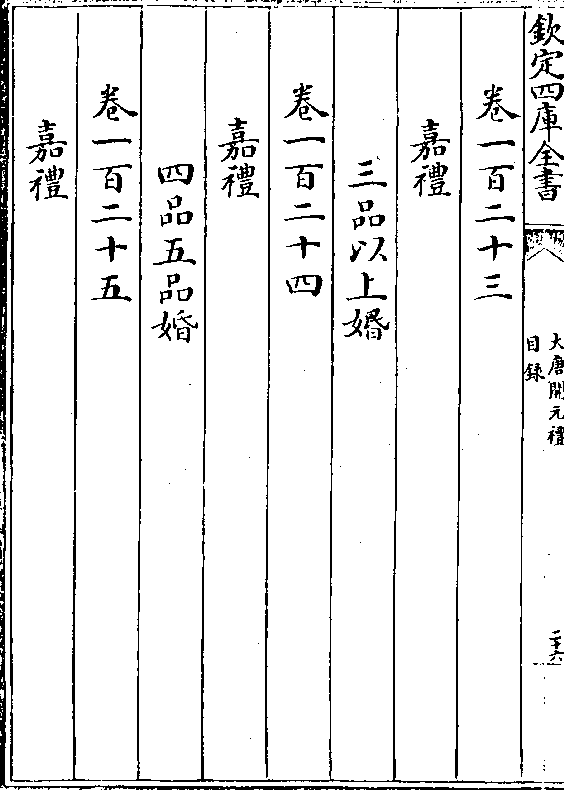 欽定四庫全書
大唐開元禮
目錄
二十六
卷一百二十三
嘉禮
三品以上婚
卷一百二十四
嘉禮
四品五品婚
卷一百二十五
嘉禮